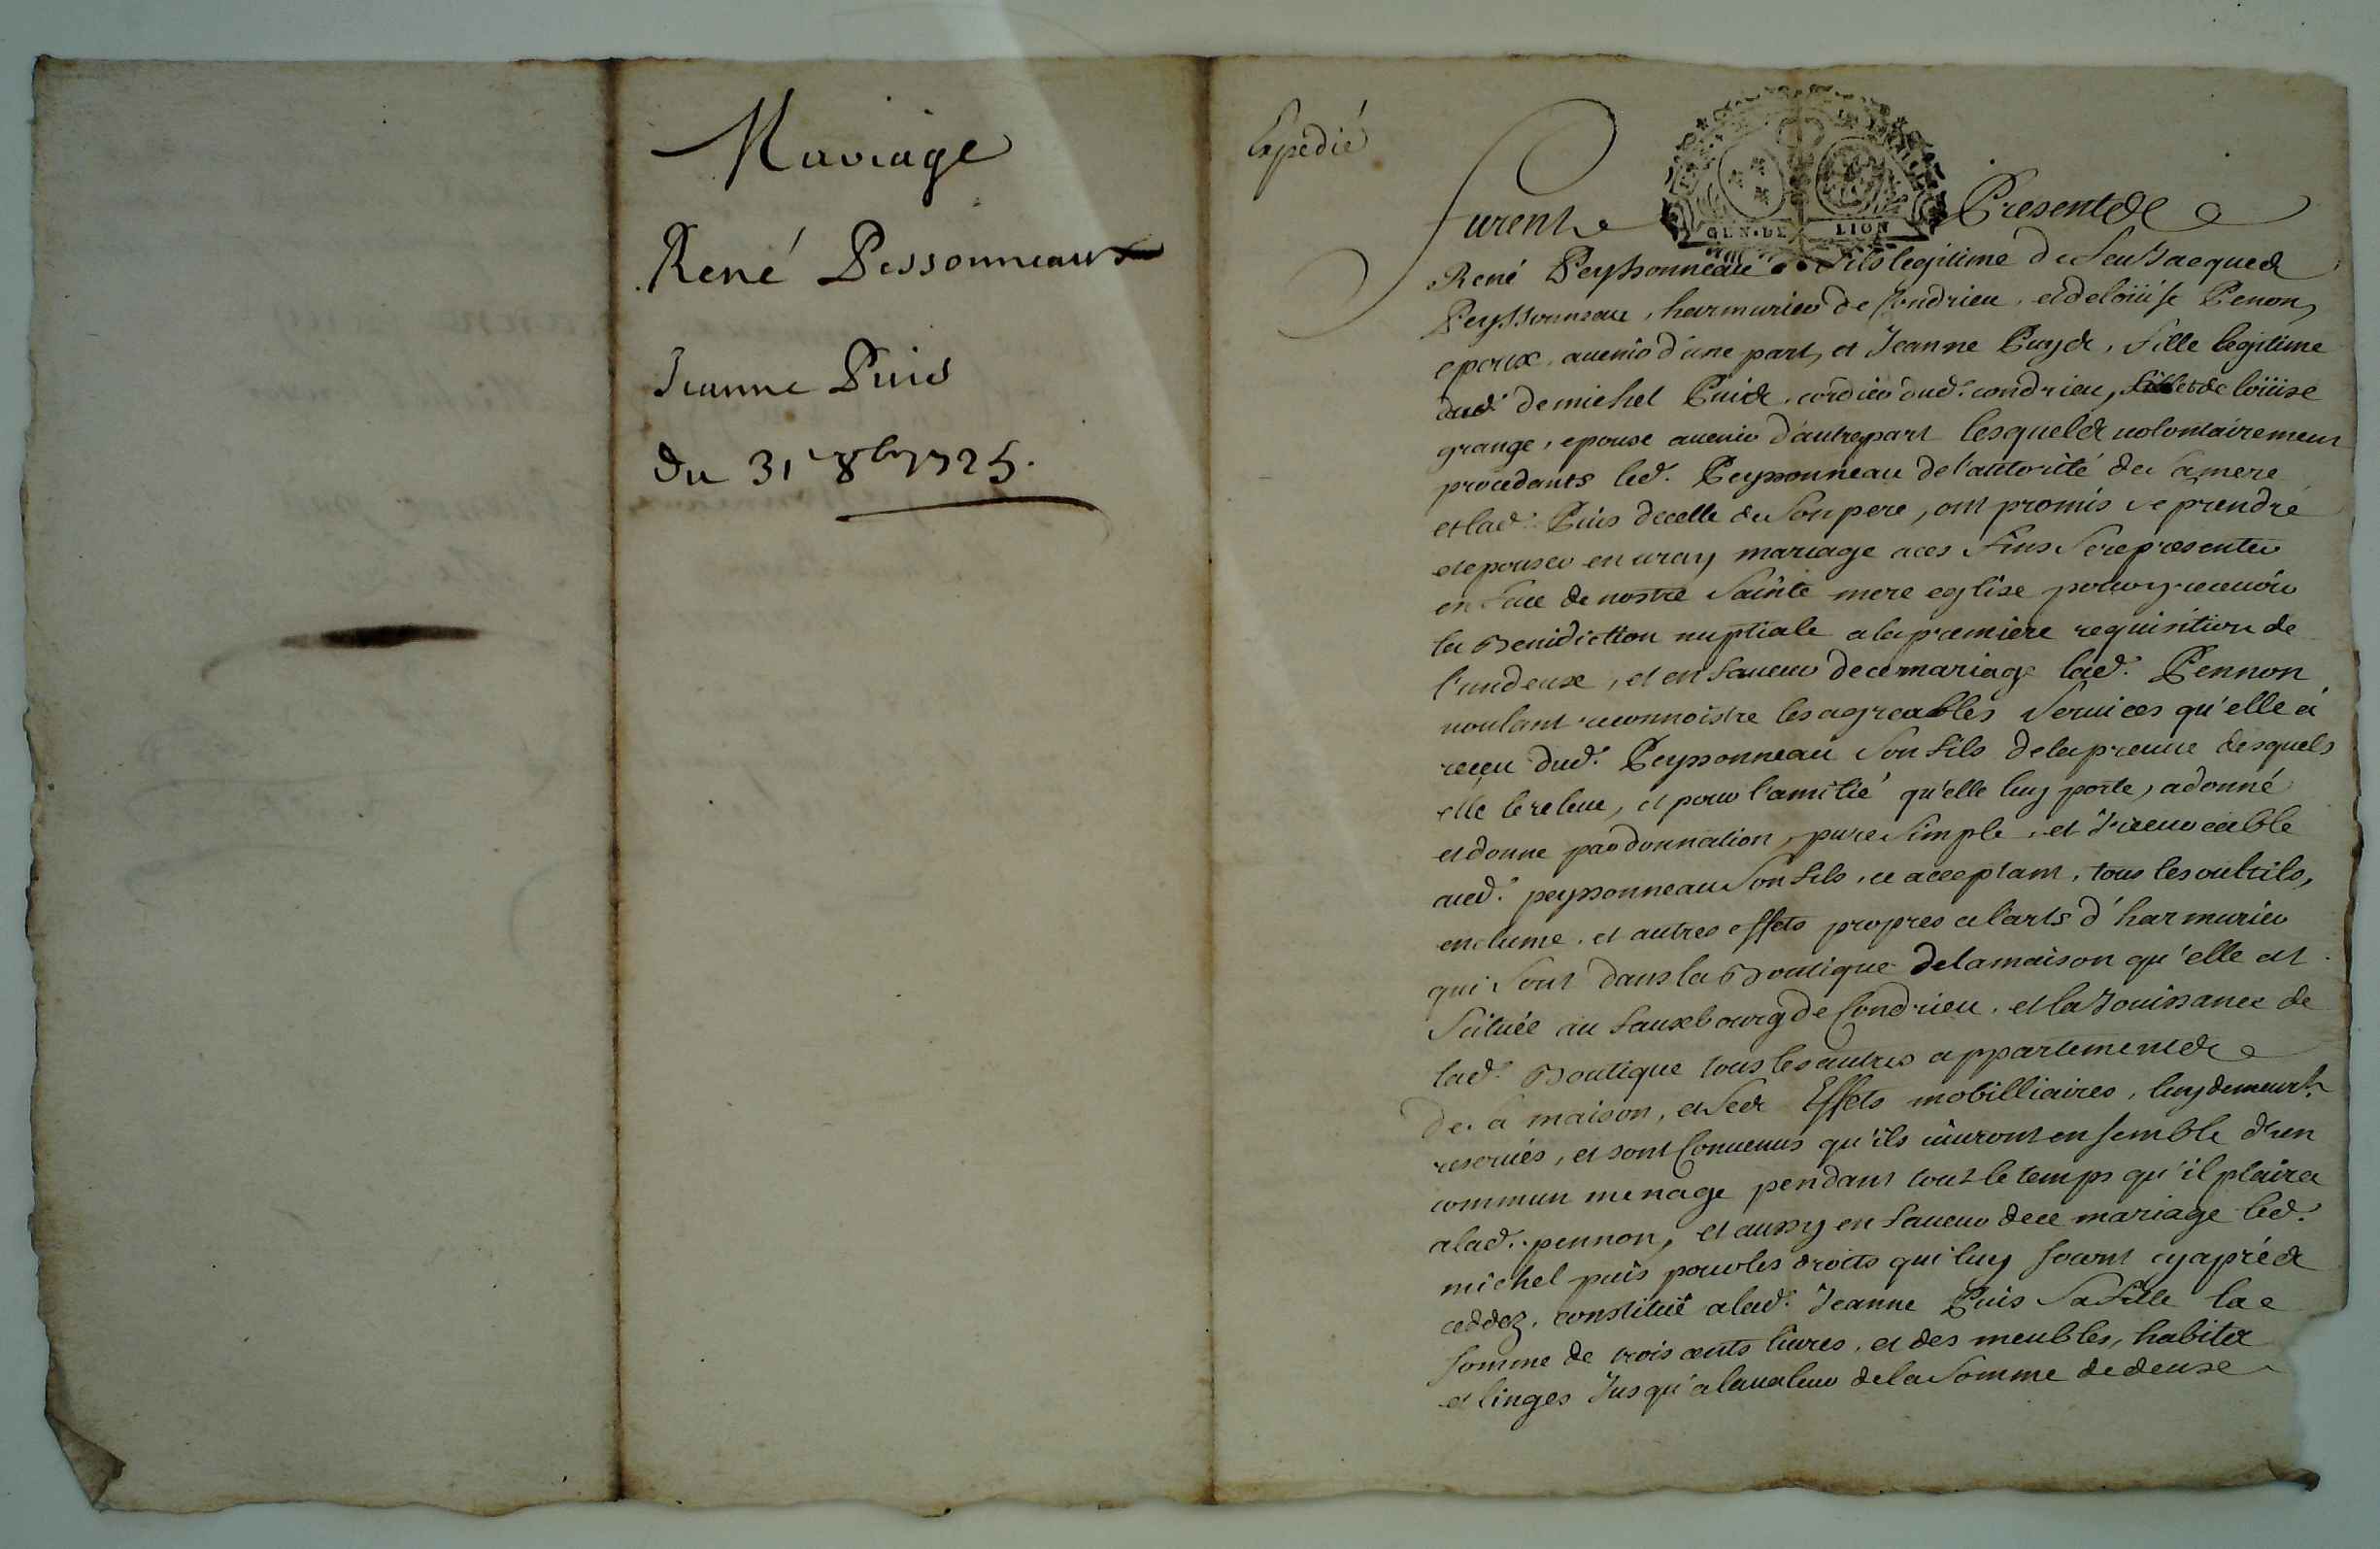 Mariage
René Pessonneaux
Jeanne Puis
du 31 8bre 1725.
Expedié
Furent Presents
GEN·DE LION
René Peyssonneau fils legitime de feu Jacques
Peyssonneau, harmurier de Condrieu, et de loüise Penon,
epoux avenir d'une part, et Jeanne Puys, fille legitime
dud. de michel Puis, cordier dud. condrieu, et de loüise
grange, epouse avenir d'autre part lesquels volontairement
procedants led. Peyssonneau de l'autorité de sa mere
et lad. Puis de celle de son pere, ont promis se prendre
et epouser en vray mariage a ces fins se representer
en face de nostre Sainte mere eglise pour y recevoir
la Benidiction nuptiale a la premiere requisition de
l'un deux, et en faveur de ce mariage lad. Pennon
voulant reconnoistre les agreables services qu'elle à
reçeu dud. Peyssonneau son fils de la preuve desquels
elle le releve, et pour l'amitié qu'elle luy porte, a donné
et donne par donnation, pure simple, et Irrevocable
aud. peyssonneau son fils, ce acceptant, tous les oultils,
enclume, et autres effets propres a l'arts d'harmurier
qui sont dans la Boutique de la maison qu'elle at
Scituée au fauxbourg de Condrieu, et la Jouissance de
lad. Boutique tous les autres appartements
de sa maison, et ses Effets mobilliaires, luy demeurt.
reservés, et sont Convenus qu'ils vivront ensemble d'un
commun menage pendant tout le temps qu'il plaira
a lad. pennon, et aussy en faveur de ce mariage led.
michel puis pour les droits qui luy seront cy aprés
ceddez, constitue a lad. Jeanne Puis sa fille la
somme de trois cents livres, et des meubles, habits
et linges Jusqu'a la valeur de la somme de deux